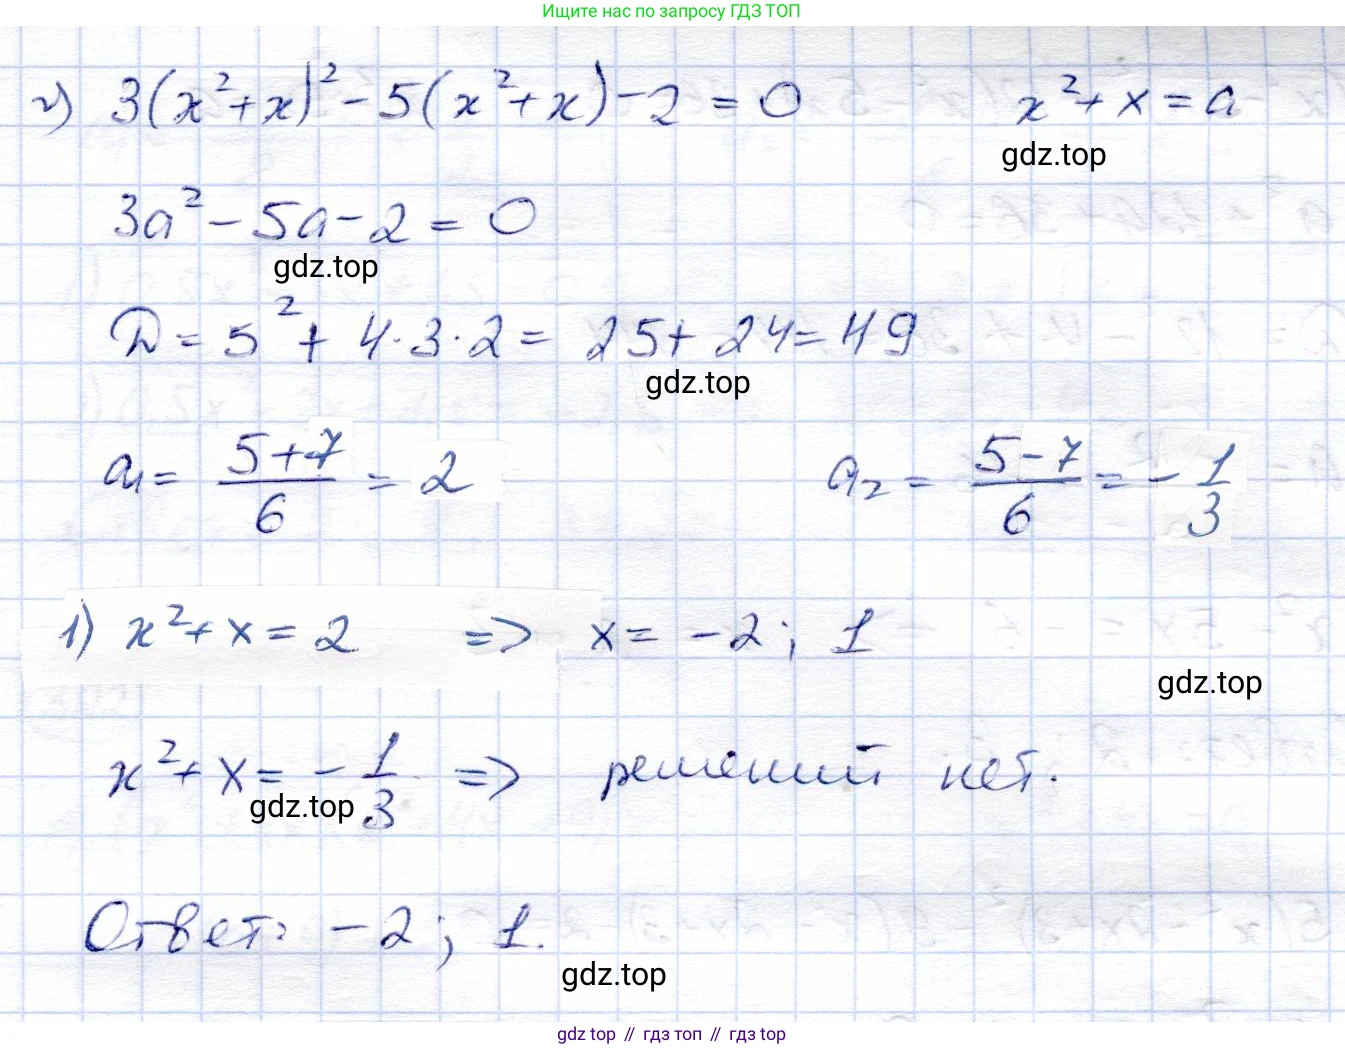 Ищите нас по запросу ГДЗ ТОП
г) 3(x²+x)² - 5(x²+x) - 2 = 0 x² + x = a
gdz.top
3a² - 5a - 2 = 0
gdz.top
D = 5² + 4·3·2 = 25 + 24 = 49
gdz.top
a₁ = (5+7)/6 = 2 a₂ = (5-7)/6 = -1/3
1) x² + x = 2 => x = -2; 1
gdz.top
x² + x = -1/3 => решений нет.
gdz.top
Ответ: -2; 1.
gdz.top
gdz top // гдз топ // gdz top